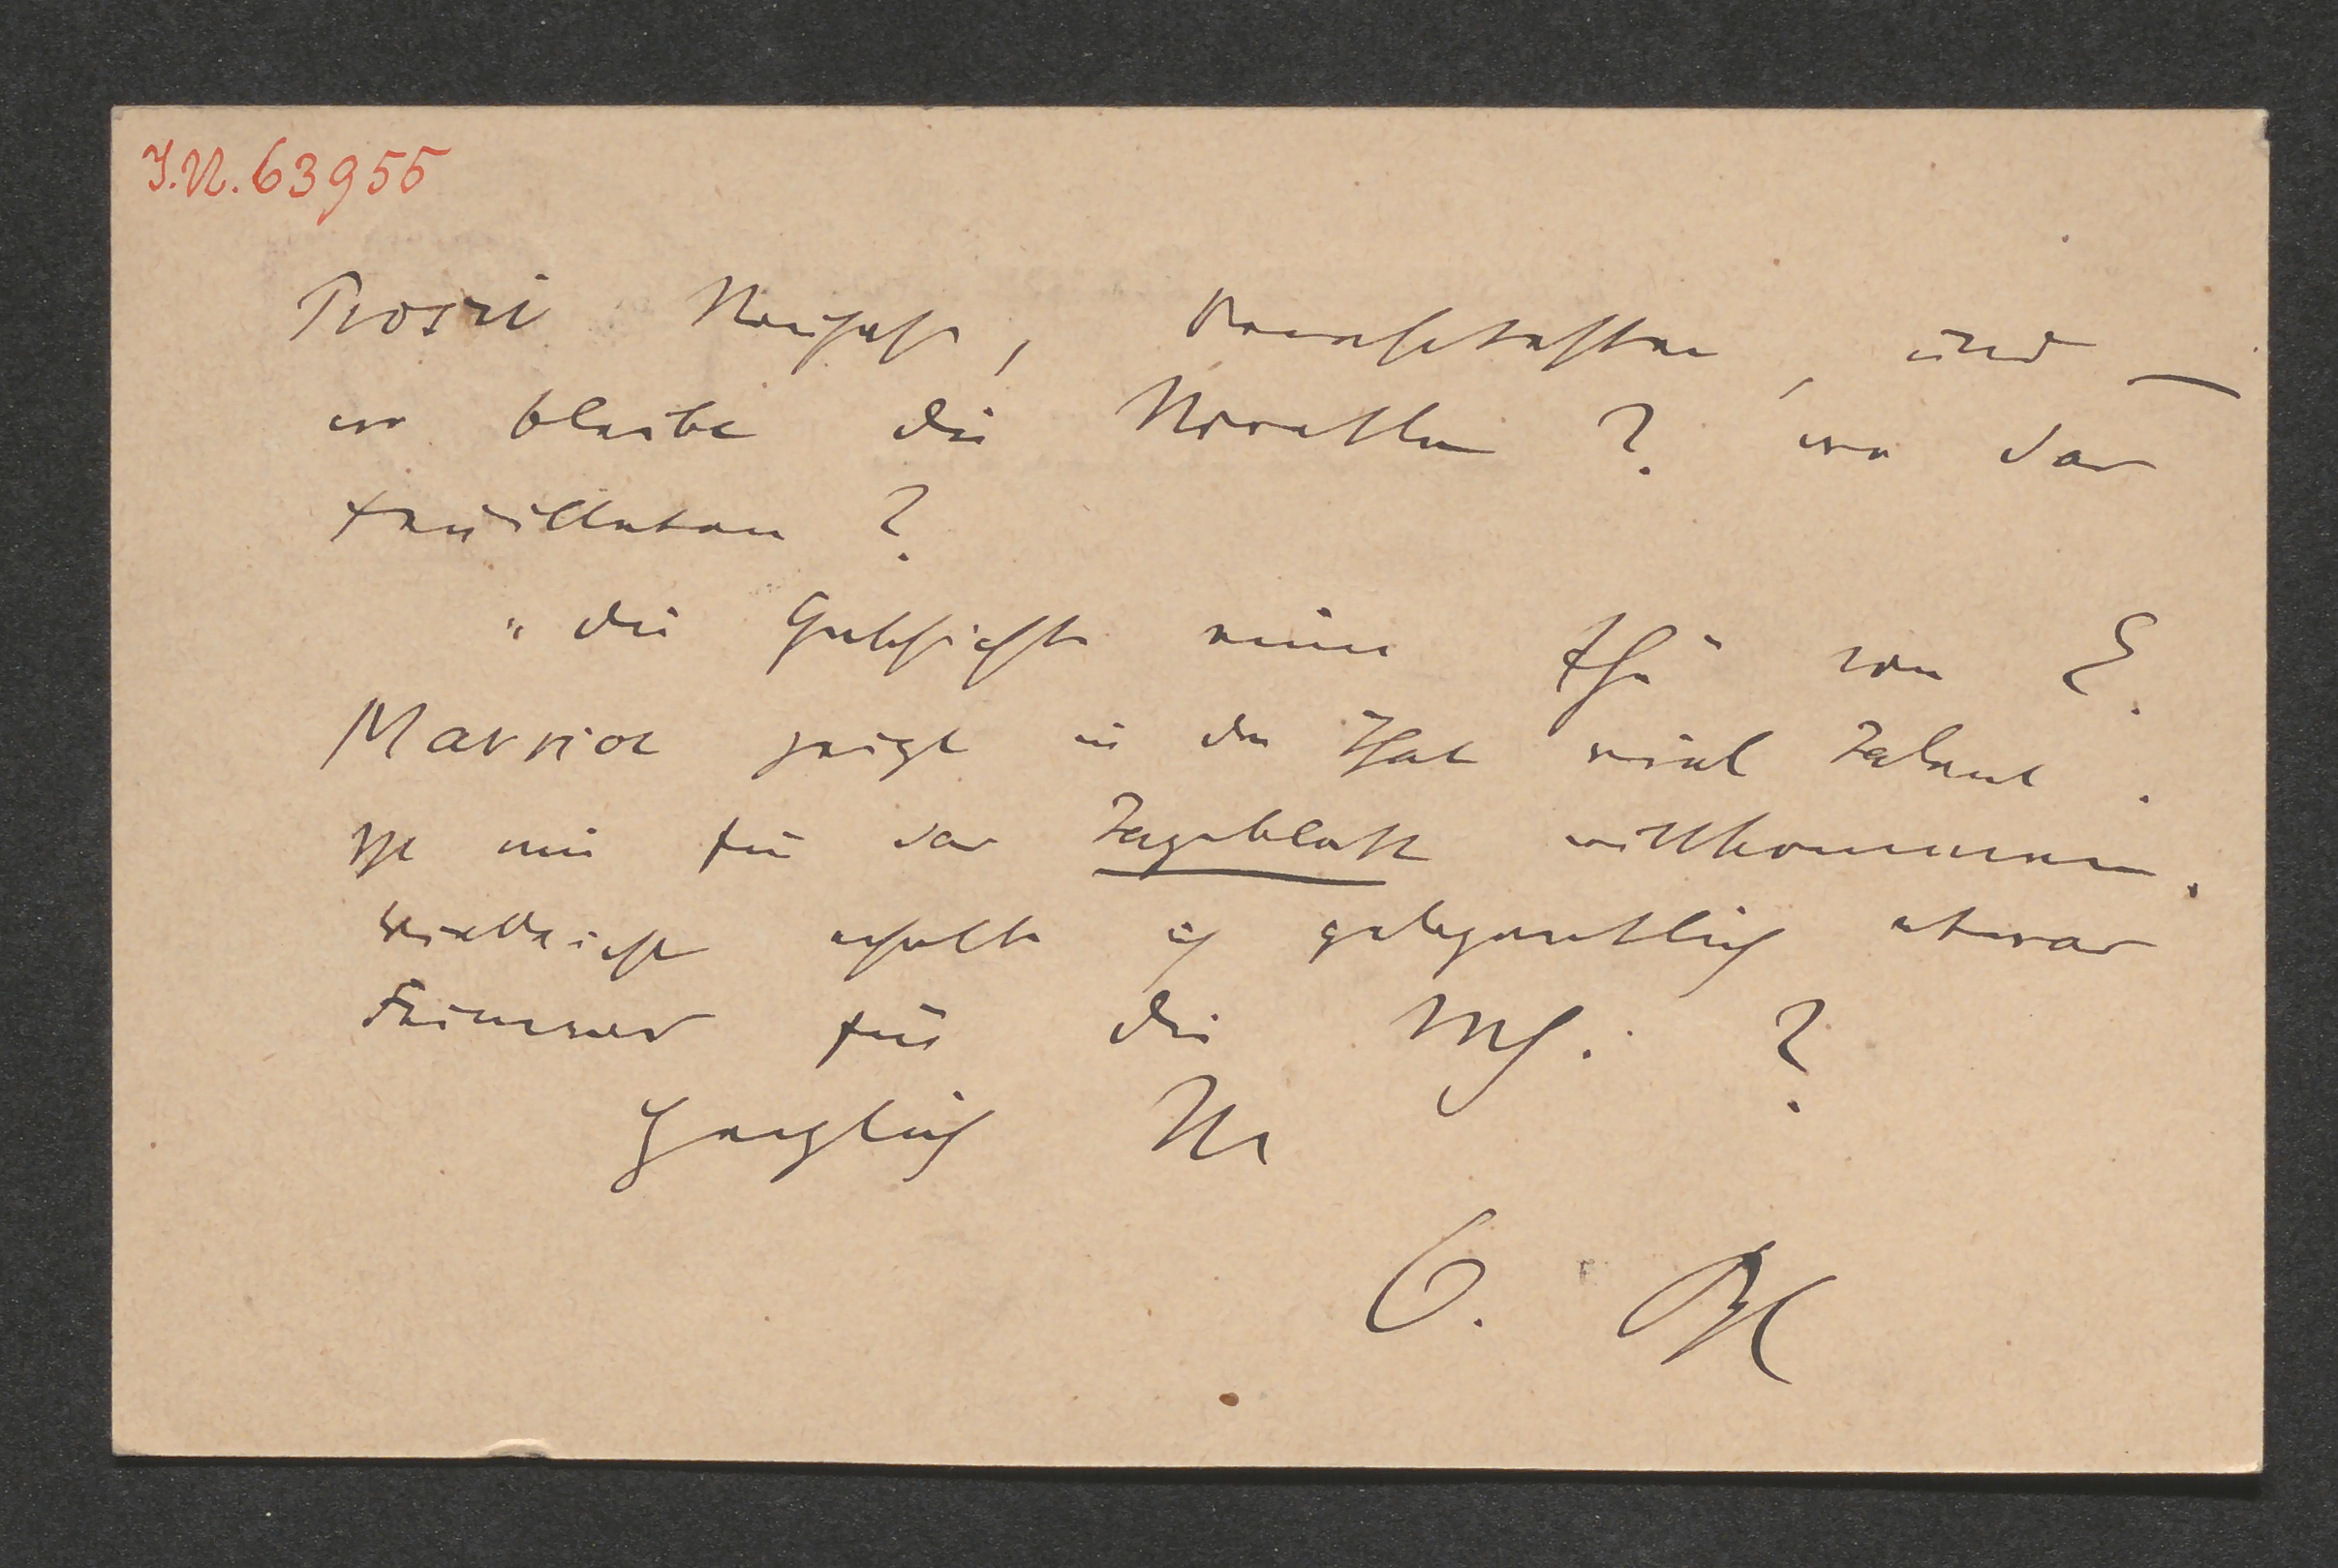 I.N. 63955
Prosit Neujahr, und —
wo bleibt die Novelle? wo das
Feuilleton?
"Die Geschichte einer Ehe" von E.
Marriot zeigt in der That viel Talent.
Ist mir für das Tageblatt willkommen.
Vielleicht erhalte ich gelegentlich etwas
Feineres für die
Herzlich Ihr
O.